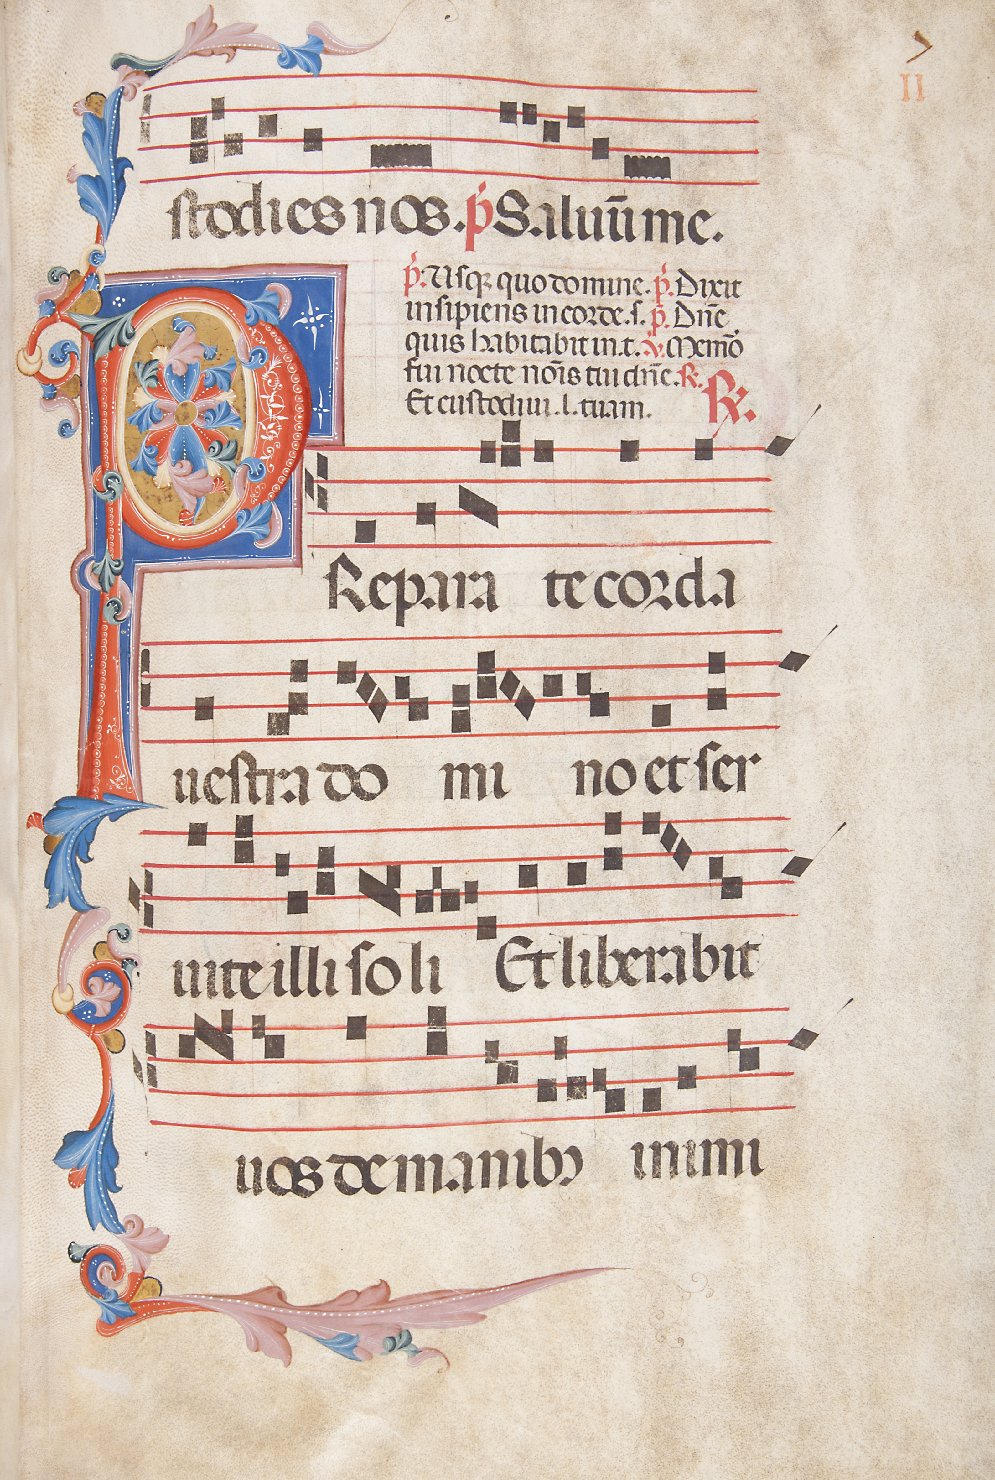 II
stodies nos. p̄ Saluū me.
p̄. Usq; quo domine. p̄. Dixit
insipiens in corde .s. p̄. Dn̄e
quis habitabit in.t. ℣. Memor
fui nocte noīs tui dn̄e. ℟.
Et custodiui .l. tuam. ℟.
P
Repara te corda
uestra domino et ser
uite illi soli Et liberabit
uos de manibꝰ inimi